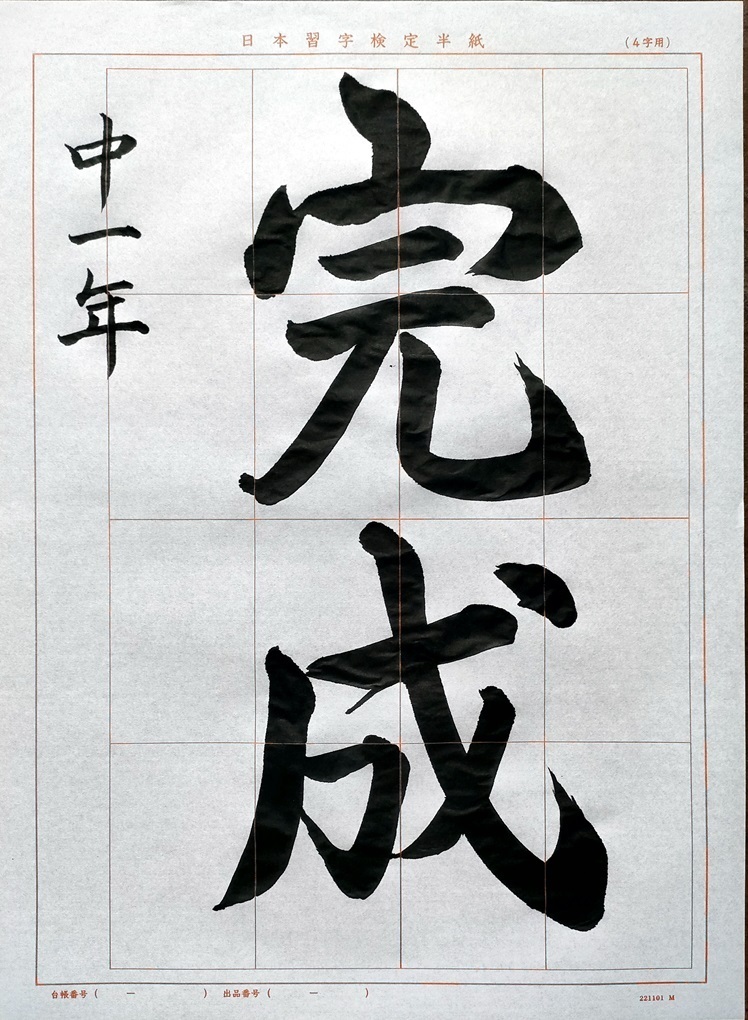 日本習字検定半紙
(4字用)
完成
中一年
台帳番号 ( ー ) 出品番号 ( ー )
221101 M